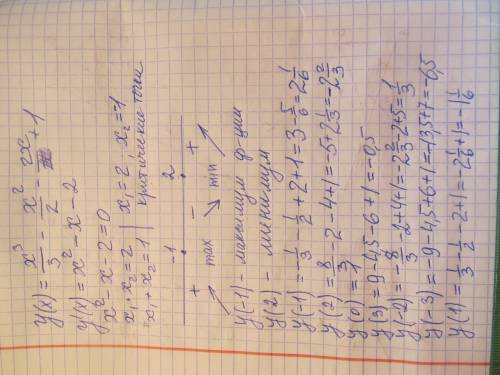 y(x) = x³/3 - x²/2 - 2x + 1
y(x) = x² - x - 2
x² - x - 2 = 0
x₁·x₂ = 2 | x₁ = 2 x₂ = -1
x₁ + x₂ = 1 | критические точки
-1 2
+ - +
max min
y(-1) - максимум ф-ции
y(2) - минимум
y(-1) = -1/3 - 1/2 + 2 + 1 = 3 - 5/6 = 2 1/6
y(2) = 8/3 - 2 - 4 + 1 = -5 + 2 1/3 = -2 2/3
y(0) = 1
y(3) = 9 - 4,5 - 6 + 1 = -0,5
y(-2) = -8/3 - 2 + 4 + 1 = -2 2/3 - 2 + 5 = 1/3
y(-3) = -9 - 4,5 + 6 + 1 = -13,5 + 7 = -6,5
y(1) = 1/3 - 1/2 - 2 + 1 = -2 1/6 + 1 = -1 1/6